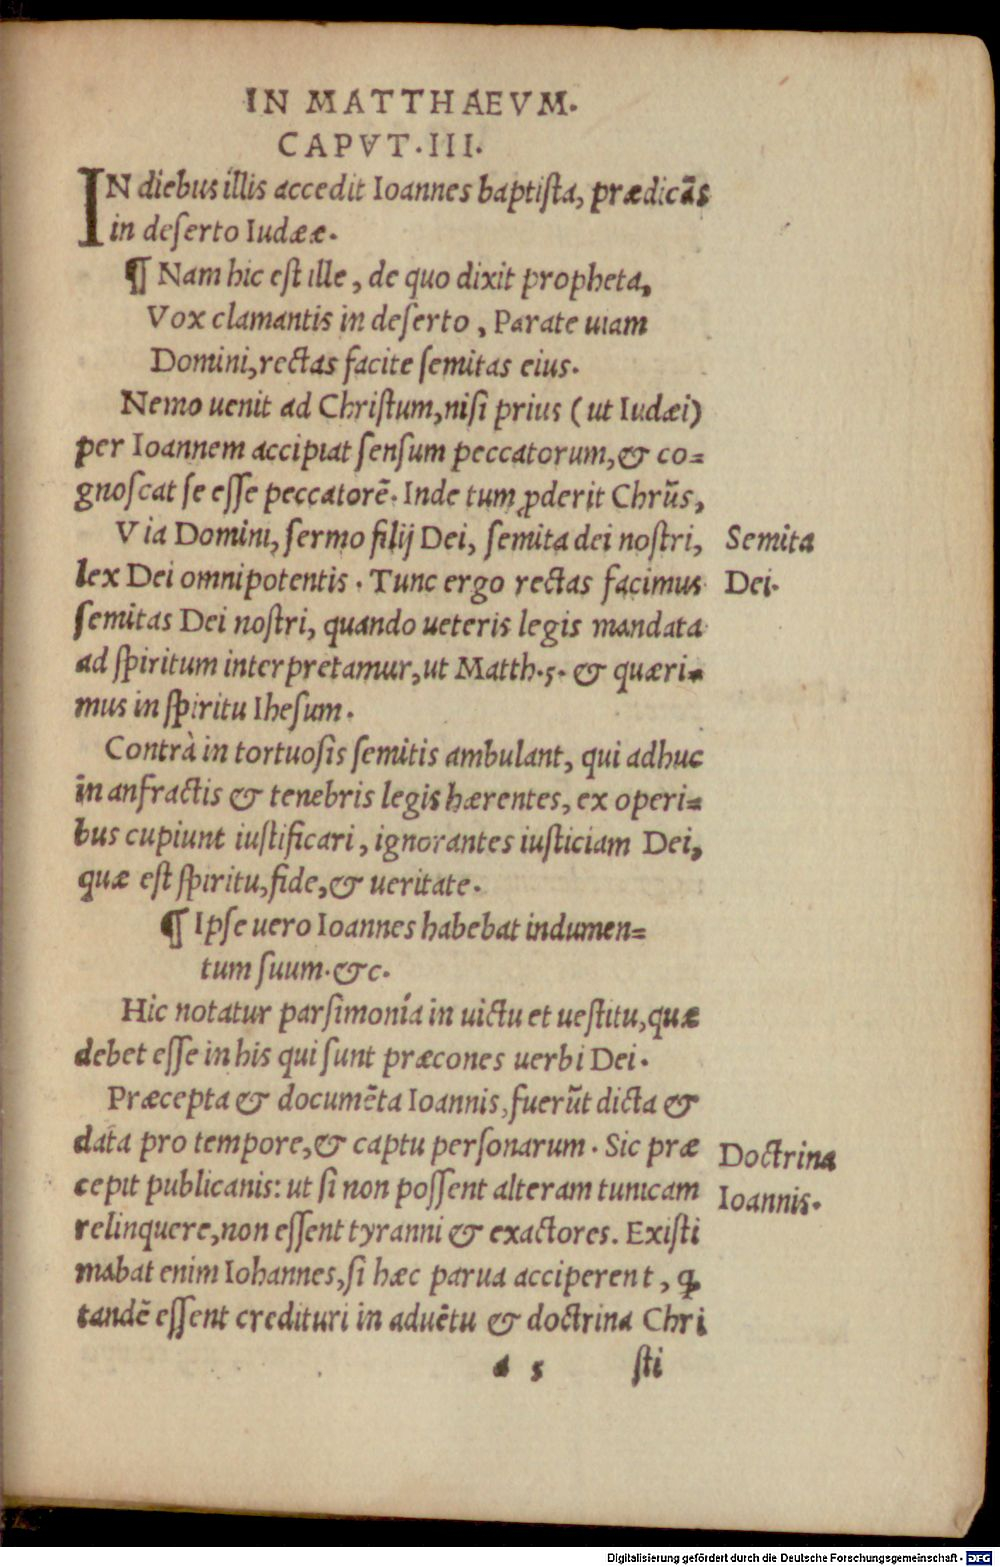 IN MATTHAEVM.
CAPVT.III.
IN diebus illis accedit Ioannes baptista, prædicās
in deserto Iudææ.
¶ Nam hic est ille, de quo dixit propheta,
Vox clamantis in deserto, Parate uiam
Domini, rectas facite semitas eius.
Nemo uenit ad Christum, nisi prius (ut Iudæi)
per Ioannem accipiat sensum peccatorum, & co=
gnoscat se esse peccatorē. Inde tum ꝓderit Chrūs,
Via Domini, sermo filij Dei, semita dei nostri,
Semita
lex Dei omnipotentis. Tunc ergo rectas facimus
Dei.
semitas Dei nostri, quando ueteris legis mandata
ad spiritum interpretamur, ut Matth.5. & quæri=
mus in spiritu Ihesum.
Contrà in tortuosis semitis ambulant, qui adhuc
in anfractis & tenebris legis hærentes, ex operi=
bus cupiunt iustificari, ignorantes iusticiam Dei,
quæ est spiritu, fide, & ueritate.
¶ Ipse uero Ioannes habebat indumen=
tum suum. &c.
Hic notatur parsimonía in uictu et uestitu, quæ
debet esse in his qui sunt præcones uerbi Dei.
Præcepta & documēta Ioannis, fuerūt dicta &
data pro tempore, & captu personarum. Sic præ
Doctrina
cepit publicanis: ut si non possent alteram tunicam
Ioannis.
relinquere, non essent tyranni & exactores. Existi
mabat enim Iohannes, si hæc parua acciperent, ꝙ
tandē essent credituri in aduētu & doctrina Chri
a 5 sti
Digitalisierung gefördert durch die Deutsche Forschungsgemeinschaft - DFG